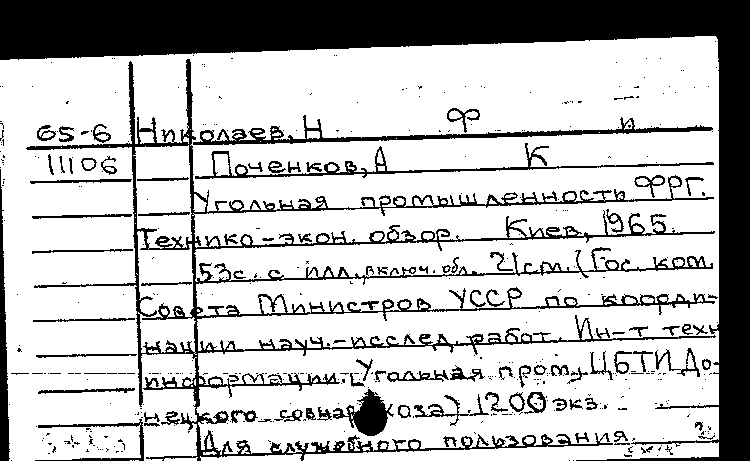 65-6 Николаев, Н Ф и
11106 Поченков, А К
Угольная промышленность ФРГ.
Технико-экон. обзор. Киев, 1965.
53с. с илл., включ. обл. 21см. (Гос. ком.
Совета Министров УССР по коорди-
нации науч.-исслед. работ. Ин-т техн
информации. Угольная пром., ЦБТИ До-
нецкого совнархоза). 1200 экз.
Для служебного пользования.